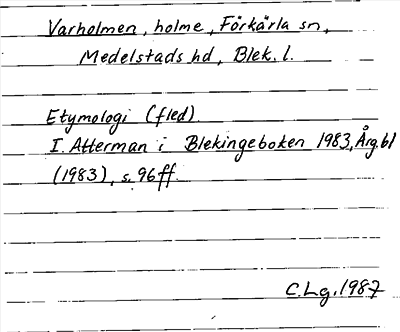 Varholmen, holme, Förkärla sn,
Medelstads hd, Blek. l.
Etymologi (fled).
I. Atterman i Blekingeboken 1983, Årg. 61
(1983), s. 96 ff.
C. Lg. 1987